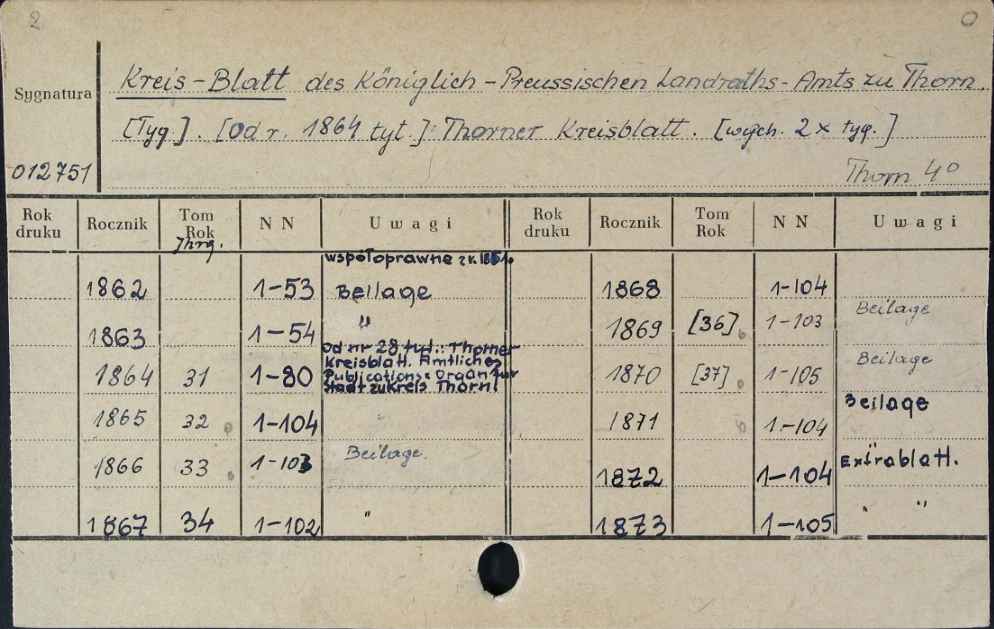 2 0
Sygnatura Kreis-Blatt des Königlich-Preussischen Landraths-Amts zu Thorn.
[Tyg.]. [Od r. 1864 tyt.]: Thorner Kreisblatt. [wych. 2x tyg.]
012751 Thorn 4°
Rok druku Rocznik Tom Rok Jhrg. NN Uwagi Rok druku Rocznik Tom Rok NN Uwagi
współoprawne z r. 1861.
1862 1-53 Beilage 1868 1-104
1863 1-54 " 1869 [36] 1-103 Beilage
1864 31 1-80 Od nr 28 tyt.: Thorner
Kreisblatt. Amtliches
Publications-Organ für
Stadt zu Kreis Thorn! 1870 [37] 1-105 Beilage
1865 32 1-104 1871 1-104 Beilage
1866 33 1-103 Beilage. 1872 1-104 Extrablatt.
1867 34 1-102 " 1873 1-105 "